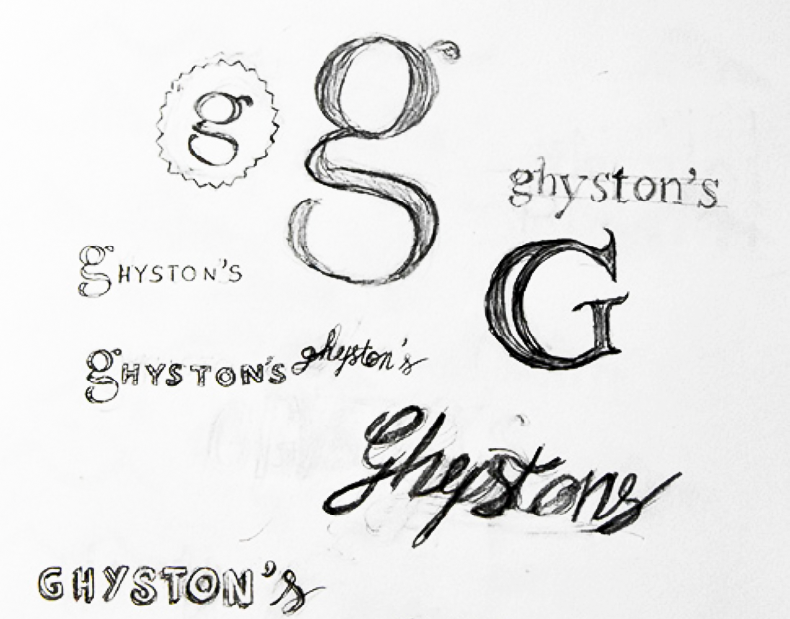 g
g
ghyston's
gHYSTON'S
G
gHYSTON'S
ghyston's
Ghystons
GHYSTON's